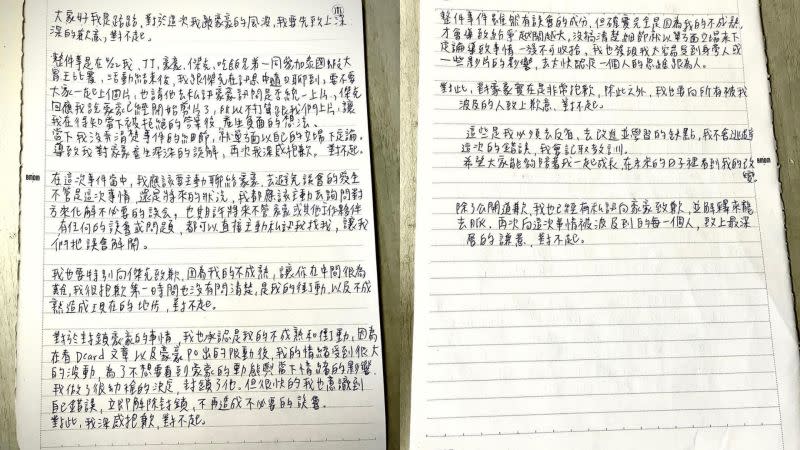 大家好我是路路,對於這次我跟家家的風波,我要先致上深
深的歉意,對不起。
整件事是在
大
胃王比賽,活動結束後,我跟傑克在訊息中聊到,要不要
大家一起上個片,也請他去私訊家家詢問是否能一上片,傑克
回應我說家家已經開始剪片了,所以不打算跟我們上片,讓
我在得知當下被拒絕的答案後,產生負面的想法。
當下我沒弄清楚事件的細節,就單方面以自己的立場下定論。
導致我對家家產生深深的誤解,再次我深感抱歉,對不起。
在這次事件當中,我應該要主動聯絡家家,去避免誤會的發生
不管是這次事情,還是將來的狀況,我都應該主動去詢問對
方來化解不必要的誤會,也期許將來不管家家或其他工作夥伴
有任何的誤會或問題,都可以直接主動私訊我找我,讓我
們把誤會解開。
我也要特別向傑克致歉,因為我的不成熟,讓你在中間很為
難,我很抱歉第一時間也沒有問清楚,是我的衝動以及不成
熟造成現在的地步,對不起。
對於封鎖家家的事情,我也承認是我的不成熟和衝動,因為
在看Dcard文章以及家家PO出的限動後,我的情緒受到很大
的波動,為了不想要看到家家的動態與當下情緒的影響,
我做了很幼稚的決定,封鎖了他。但很快的我也意識到
自己錯誤,立即解除封鎖,不再造成不必要的誤會。
對此,我深感抱歉,對不起。
bmon
整件事情雖然有誤會的成分,但確實完全是因為我的不成熟,
才會導致紛爭越鬧越大,沒搞清楚細節就以單方面立場來下
定論導致事情一發不可收拾,我也發現我太容易受到身旁人或
一些影片的影響,去大快認定一個人的思維跟為人。
對此,對家家實在是非常抱歉,除此之外,我也要向所有被我
波及的人致上歉意,對不起。
這些是我必須去反省、去改進並學習的缺點,我不會逃避
這次的錯誤,我會記取教訓。
希望大家能夠陪著我一起成長,在未來的日子裡看到我的改
變。
bmon
除了公開道歉,我也已經有私訊向家家致歉,並解釋來龍
去脈,再次向這次事情被波及到的每一個人,致上最深
層的歉意,對不起。